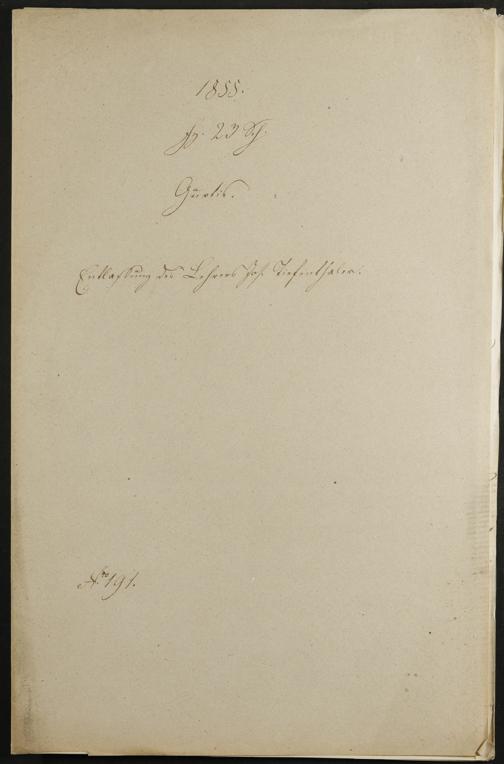 1855.
fz. 23 Sch.
Gurtis.
Entlassung des Lehrers Joh. Tiefenthaler.
No 191.